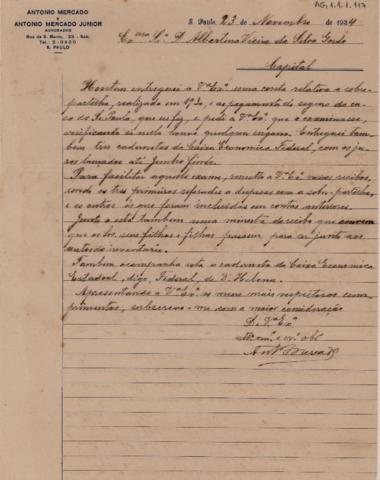 AG.1.1.1.117
ANTONIO MERCADO
E
ANTONIO MERCADO JUNIOR
ADVOGADOS
Rua de S. Bento,
Tel.: 2-0420
S. PAULO
S. Paulo, 23 de Novembro de 1934
Ex.ma Sr.a D. Albertina Vieira da Silva Gordo
Capital
Hontem entreguei a V.a Ex.a uma conta relativa a sobre-
partilha, realizada em 1930, e ao pagamento do seguro da ca-
sa de S. Paulo, que eu fiz, e pedi a V.a Ex.a que a examinasse,
verificando si nella houve qualquer engano. Entreguei tam-
bem tres cadernetas da Caixa Economica Federal, com os ju-
ros lançados até Junho findo.
Para facilitar aquelle exame, remetto a V.a Ex.a varios recibos,
sendo os tres primeiros referidos a despesas com a sobre-partilha,
e os outros os que foram incluidas em contas anteriores.
Junto a esta tambem uma minuta de recibo que convem
que os srs. seus filhos e filhas passem para ser junto aos
autos do inventario.
Tambem acompanha esta a caderneta da Caixa Economica
Estadoal, digo, Federal, de D. Helena.
Apresentando a V.a Ex.a os meus mais respeitosos cum-
primentos, subscrevo-me com a maior consideração
D. V.a Ex.a
e cr.o ob.o
Ant.o Mercado